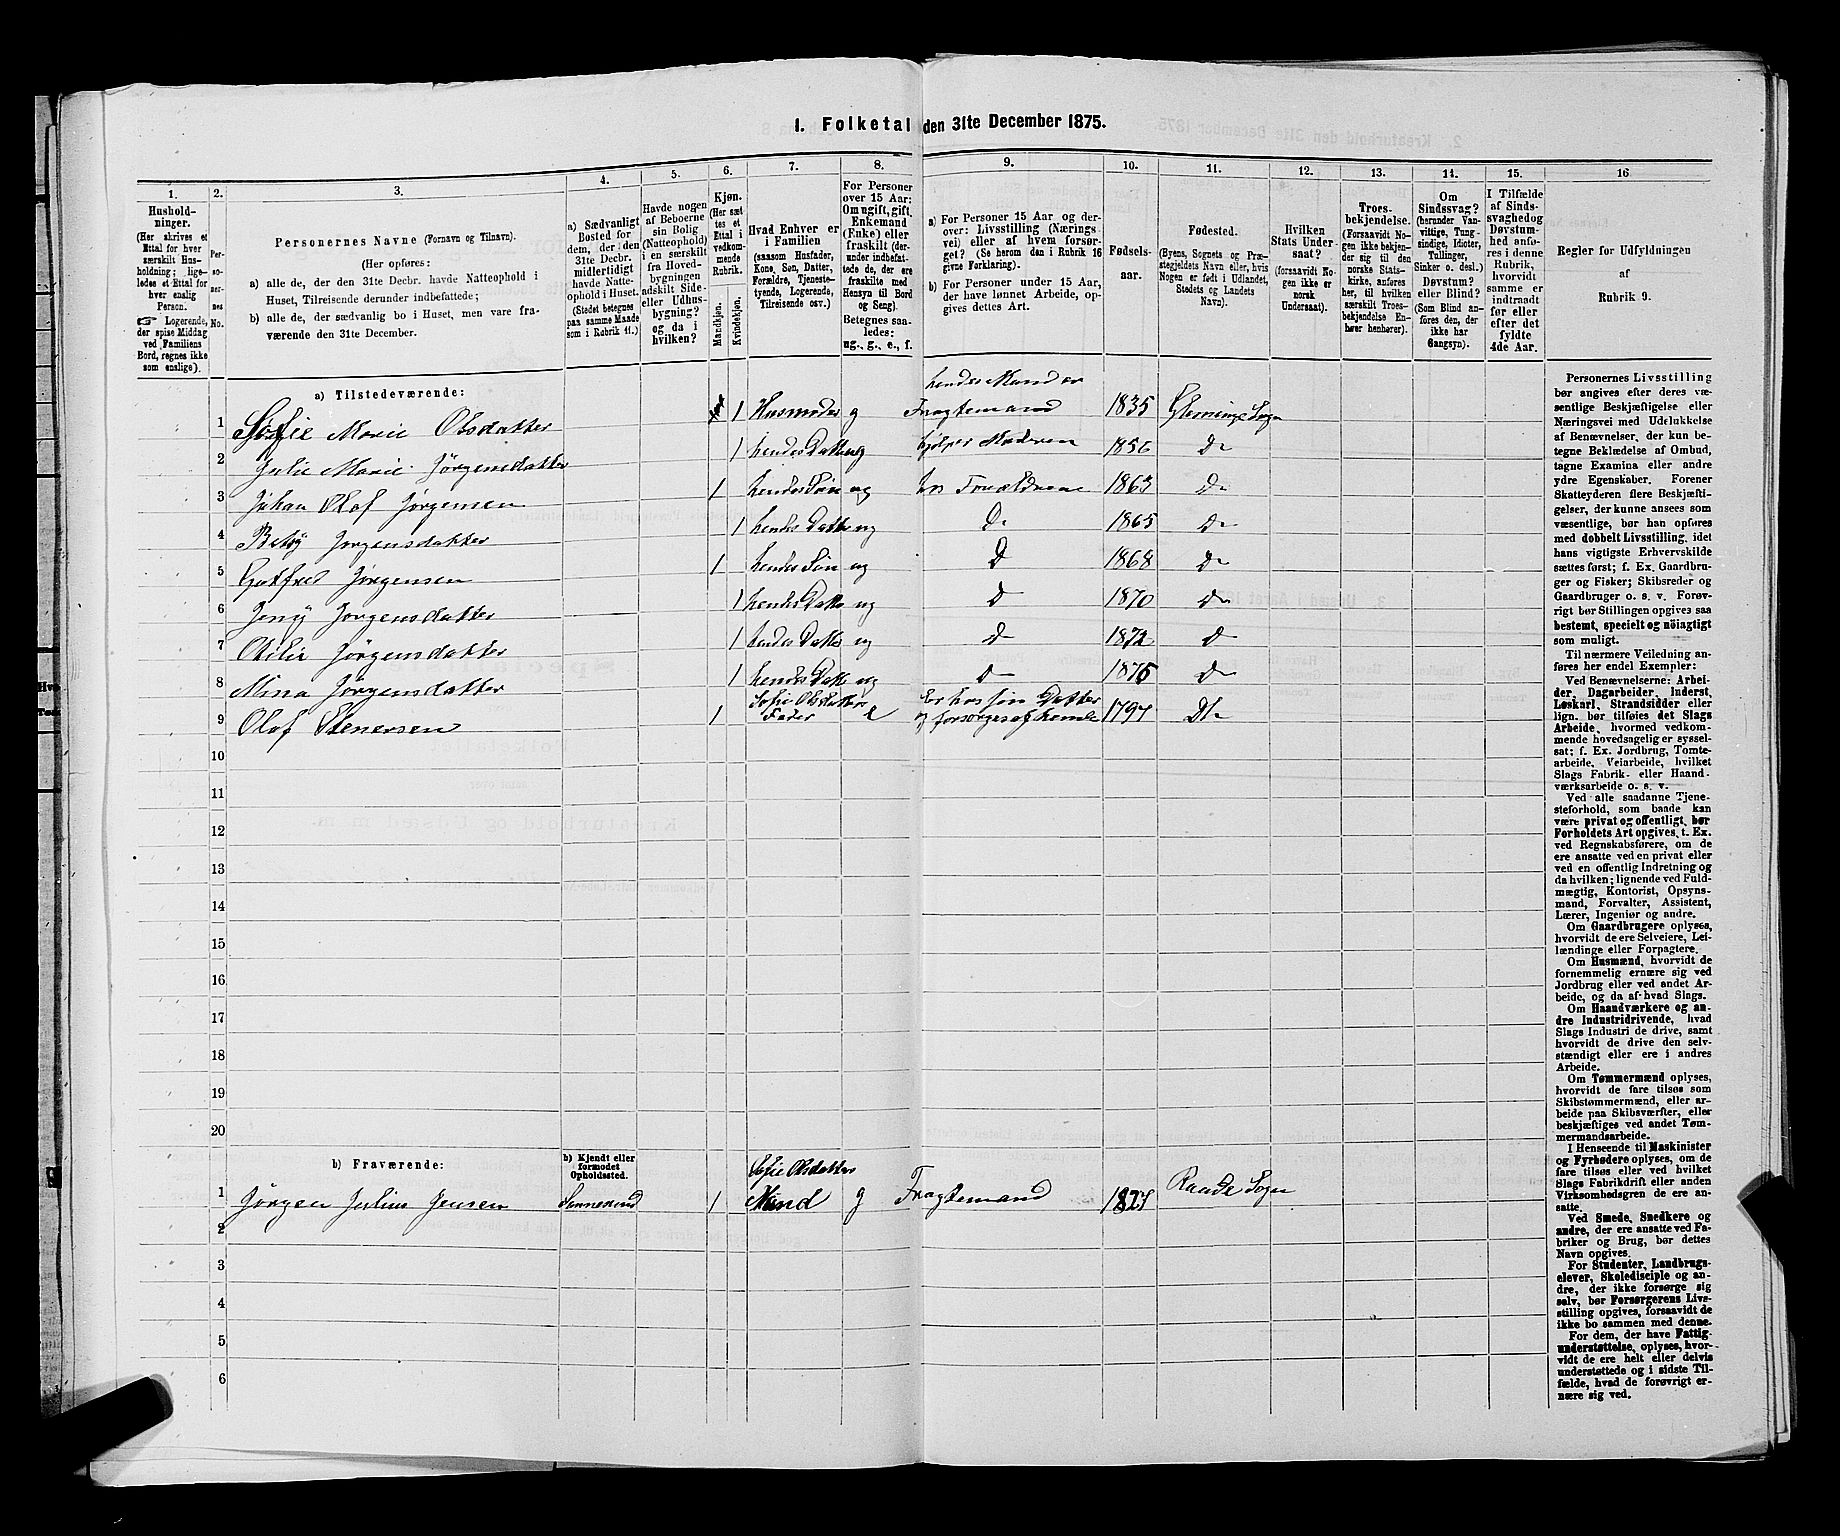 1. Folketal den 31te December 1875.
1. 2. 3. 4. 5. 6. 7. 8. 9. 10. 11. 12. 13. 14. 15. 16
Hushold-
ninger.
(Her skrives et
Ettal for hver
særskilt Hus-
holdning; lige-
ledes et Ettal for
hver enslig
Person.
☞ Logerende,
der spise Middag
ved Familiens
Bord, regnes ikke
som enslige).
Per-
so-
ner-
nes
No.
Personernes Navne (Fornavn og Tilnavn).
(Her opføres:
a) alle de, der den 31te Decbr. havde Natteophold i
Huset, Tilreisende derunder indbefattede;
b) alle de, der sædvanlig bo i Huset, men vare fra-
værende den 31te December.
a) Sædvanligt
Bosted for
dem, der i den
31te Decbr.
midlertidigt
havde Natte-
ophold i Huset.
(Stedet betegnes
paa samme Maade
som i Rubrik 11.)
Havde nogen
af Beboerne
sin Bolig
(Natteophold)
i en særskilt
fra Hoved-
bygningen
adskilt Side-
eller Udhus-
bygning?
og da i
hvilken?
Kjøn.
(Her sæt-
tes et
Ettal i
vedkom-
mende
Rubrik.
Mandkjøn.
Kvindekjøn.
Hvad Enhver er
i Familien
(saasom Husfader,
Kone, Søn, Datter,
Forældre, Tjeneste-
tyende, Logerende,
Tilreisende osv.)
For Personer
over 15 Aar:
Om ugift, gift,
Enkemand
(Enke) eller
fraskilt (der-
under indbefat-
tede de, der ere
fraskilte med
Hensyn til Bord
og Seng).
Betegnes saa-
ledes:
ug., g., e., f.
a) For Personer 15 Aar og der-
over: Livsstilling (Nærings
vei) eller af hvem forsør-
get? (Se herom den i Rubrik 16
givne Forklaring).
b) For Personer under 15 Aar,
der have lønnet Arbeide, op-
gives dettes Art.
Fødsels-
aar.
Fødested.
(Byens, Sognets og Præ-
stegjeldets Navn eller, hvis
Nogen er født i Udlandet,
Stedets og Landets
Navn).
Hvilken
Stats Under-
saat?
(forsaavidt No-
gen ikke er
norsk
Undersaat).
Troes-
bekjendelse.
(Forsaavidt No-
gen ikke bekjen-
der sig til den
norske Stats-
kirke, anføres
her, til hvilken
særskilt Troes-
bekjendelse En-
hver henhører).
Om
Sindssvag?
(herunder Van-
vittige, Tung-
sindige, Idioter,
Tullinger,
Sinker o. desl.)
Døvstum?
eller Blind?
(Som Blind an-
føres den, der
ikke har
Gangsyn).
I Tilfælde
af Sinds-
svaghed og
Døvstum-
hed anfø-
res i denne
Rubrik,
hvorvidt
samme er
indtraadt
før eller
efter det
fyldte
4de Aar.
Regler for Udfyldningen
af
Rubrik 9.
a) Tilstedeværende:
1 Sofie Marie Olsdatter 1 Husmoder g hendes Mand er Fragtemand 1835 Glemminge Sogn
2 Julie Marie Jørgensdatter 1 hendes Datter ug hjelper Moderen 1856 Do
3 Johan Olaf Jørgensen 1 hendes Søn ug hos Forældrene 1863 Do
4 Betsy Jørgensdatter 1 hendes Datter ug Do 1865 Do
5 Gotfred Jørgensen 1 hendes Søn ug D 1868 Do
6 Jeny Jørgensdatter 1 hendes Datter ug D 1870 Do
7 Otilie Jørgensdatter 1 hendes Datter ug D 1872 D
8 Mina Jørgensdatter 1 hendes Datter ug D 1875 D
9 Olaf Stenersen 1 Sofie Olsdatters Fader e Er hos sin Datter og forsørges af hende 1797 Do
10
11
12
13
14
15
16
17
18
19
20
b) Fraværende:
b) Kjendt eller
formodet
Opholdssted.
1 Jørgen Julius Jensen Sannesund 1 Sofie Olsdatters Mand g Fragtemand 1827 Raade Sogn
2
3
4
5
6
Personernes Livsstilling
bør angives efter deres væ-
sentlige Beskjæftigelse eller
Næringsvei med Udelukkelse
af Benævnelser, der kun be-
tegne Beklædelse af Ombud,
tagne Examina eller andre
ydre Egenskaber. Forener
Skatteyderen flere Beskjæfti-
gelser, der kunne ansees som
væsentlige, bør han opføres
med dobbelt Livsstilling, idet
hans vigtigste Erhvervskilde
sættes først; f. Ex. Gaardbru-
ger og Fisker; Skibsreder og
Gaardbruger o. s. v. Forøv-
rigt bør Stillingen opgives saa
bestemt, specielt og nöiagtigt
som muligt.
Til nærmere Veiledning an-
føres her endel Exempler:
Ved Benævnelserne: Arbei-
der, Dagarbeider, Inderst,
Løskarl, Strandsidder eller
lign. bør tilføies det Slags
Arbeide, hvormed vedkom-
mende hovedsagelig er syssel-
sat; f. Ex. Jordbrug, Tomte-
arbeide, Veiarbeide, hvilket
Slags Fabrik- eller Haand-
værksarbeide o. s. v.
Ved alle saadanne Tjene-
steforhold, som baade kan
være privat og offentligt, bør
Forholdets Art opgives, t. Ex.
ved Regnskabsførere, om de
ere ansatte ved en privat eller
ved en offentlig Indretning og
da hvilken; lignende ved Fuld-
mægtig, Kontorist, Opsyns-
mand, Forvalter, Assistent,
Lærer, Ingeniør og andre.
Om Gaardbrugere oplyses,
hvorvidt de ere Selveiere, Lei-
lændinge eller Forpagtere.
Om Husmænd, hvorvidt de
fornemmelig ernære sig ved
Jordbrug eller ved andet Ar-
beide, og da af hvad Slags.
Om Haandværkere og an-
dre Industridrivende, hvad
Slags Industri de drive, samt
hvorvidt de drive den selv-
stændigt eller ere i andres
Arbeide.
Om Tømmermænd oplyses,
hvorvidt de fare tilsøs som
Skibstømmermænd, eller ar-
beide paa Skibsværfter, eller
beskjæftiges ved andet Tøm-
mermandsarbeide.
I Henseende til Maskinister
og Fyrbødere oplyses, om de
fare tilsøs eller ved hvilket
Slags Fabrikdrift eller anden
Virksomhedsgren de ere an-
satte.
Ved Smede, Snedkere og
andre, der ere ansatte ved Fa-
briker og Brug, bør dettes
Navn opgives.
For Studenter, Landbrugs-
elever, Skoledisciple og an-
dre, der ikke forsørge sig
selv, bør Forsørgerens Livs-
stilling opgives, forsaavidt de
ikke bo sammen med denne.
For dem, der have Fattig-
understøttelse, oplyses, hvor-
vidt de ere helt eller delvis
understøttede og i sidste Til-
fælde, hvad de forøvrigt er-
nære sig ved.